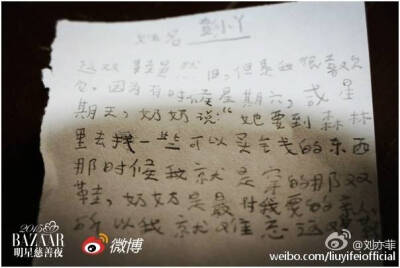 姓名 彭小丫
这双鞋虽然旧,但是我很喜欢
它,因为有时候星期六,或星
期天,奶奶说“她要到森林
里去找一些可以买钱的东西
那时候我就是穿的那双
鞋,奶奶是最
所以我就难忘这
2015
BAZAAR
明星慈善夜
微博
@刘亦菲
weibo.com/liuyifeiofficial